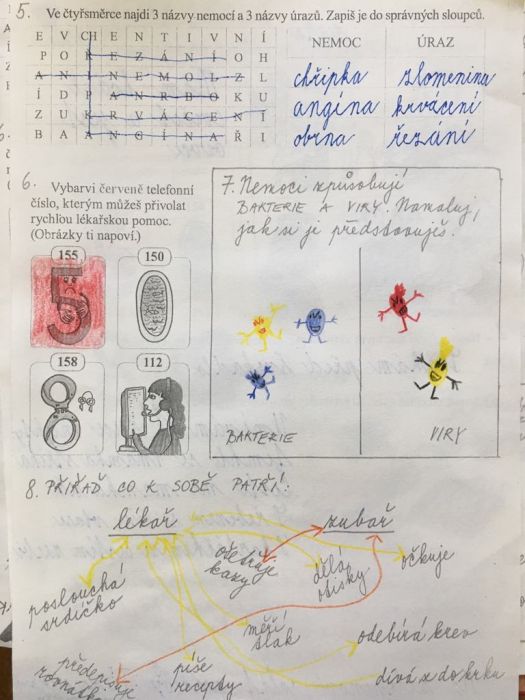 5. Ve čtyřsměrce najdi 3 názvy nemocí a 3 názvy úrazů. Zapiš je do správných sloupců.
E V CH E N T I V N Í
P O Ř E Z Á N Í O H
A N I N E M O L Z L
Í D P A N R B O K U
Z U K R V Á C E N Í
B A A N G Í N A Ř I
NEMOC ÚRAZ
chřipka zlomenina
angína krvácení
obrna řezání
6. Vybarvi červeně telefonní
číslo, kterým můžeš přivolat
rychlou lékařskou pomoc.
(Obrázky ti napoví.)
155 150
158 112
7. Nemoci způsobují
BAKTERIE A VIRY. Namaluj,
jak si je představuješ.
BAKTERIE VIRY
8. PŘIŘAĎ CO K SOBĚ PATŘÍ!
lékař zubař
poslouchá
srdíčko
ošetřuje
kazy
dělá
otisky
očkuje
měří
tlak
odebírá krev
předepisuje
rovnátka
píše
recepty
dívá se do krku